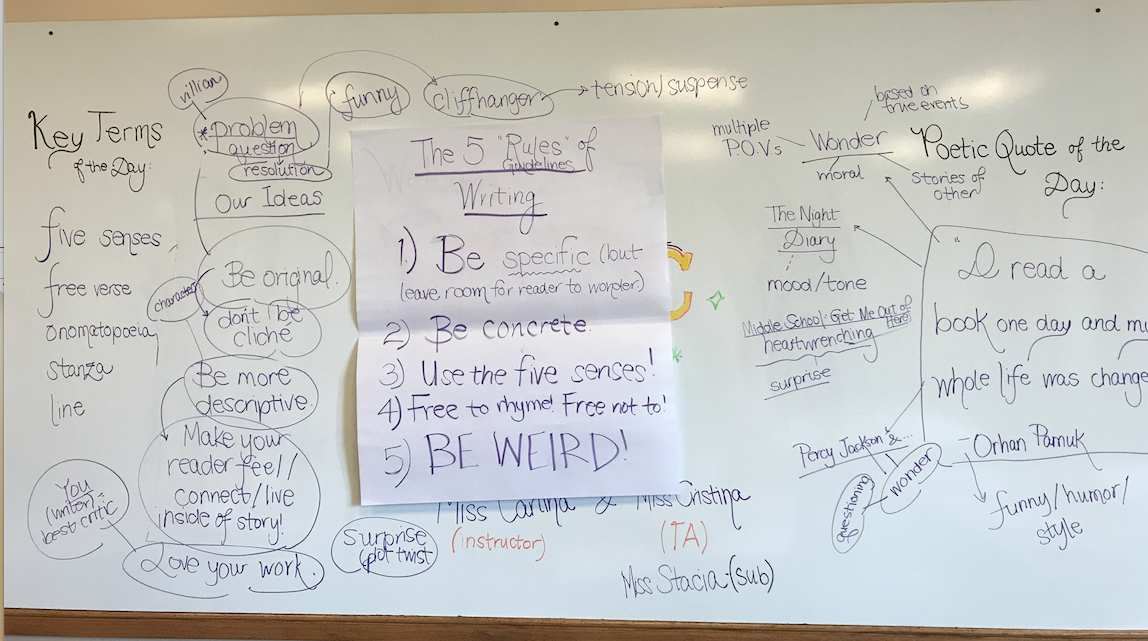 Key Terms
of the Day:
five senses
free verse
onomatopoeia
stanza
line
villian
*problem
question
resolution
funny
cliffhanger
tension/suspense
Our Ideas
Be original.
character
don't be
cliché
Be more
descriptive
Make your
reader feel/
connect/live
inside of story!
You
(writer) =
best critic
Love your work.
Surprise
(plot twist
The 5 "Rules" of
Guidelines
Writing
1) Be specific (but
leave room for reader to wonder.)
2) Be concrete.
3) Use the five senses!
4) Free to rhyme! Free not to!
5) BE WEIRD!
Miss & Miss Cristina
(instructor)
(TA)
Miss Stacia-(sub)
based on
true events
multiple
P.O.V.s
Wonder
moral
Stories of
other
The Night
Diary
mood/tone
Middle School: Get Me Out of
Here!
heartwrenching
surprise
Percy Jackson &...
wonder
questioning
Poetic Quote of the
Day:
"I read a
book one day and m
whole life was change
- Orhan Pamuk
funny/humor/
style